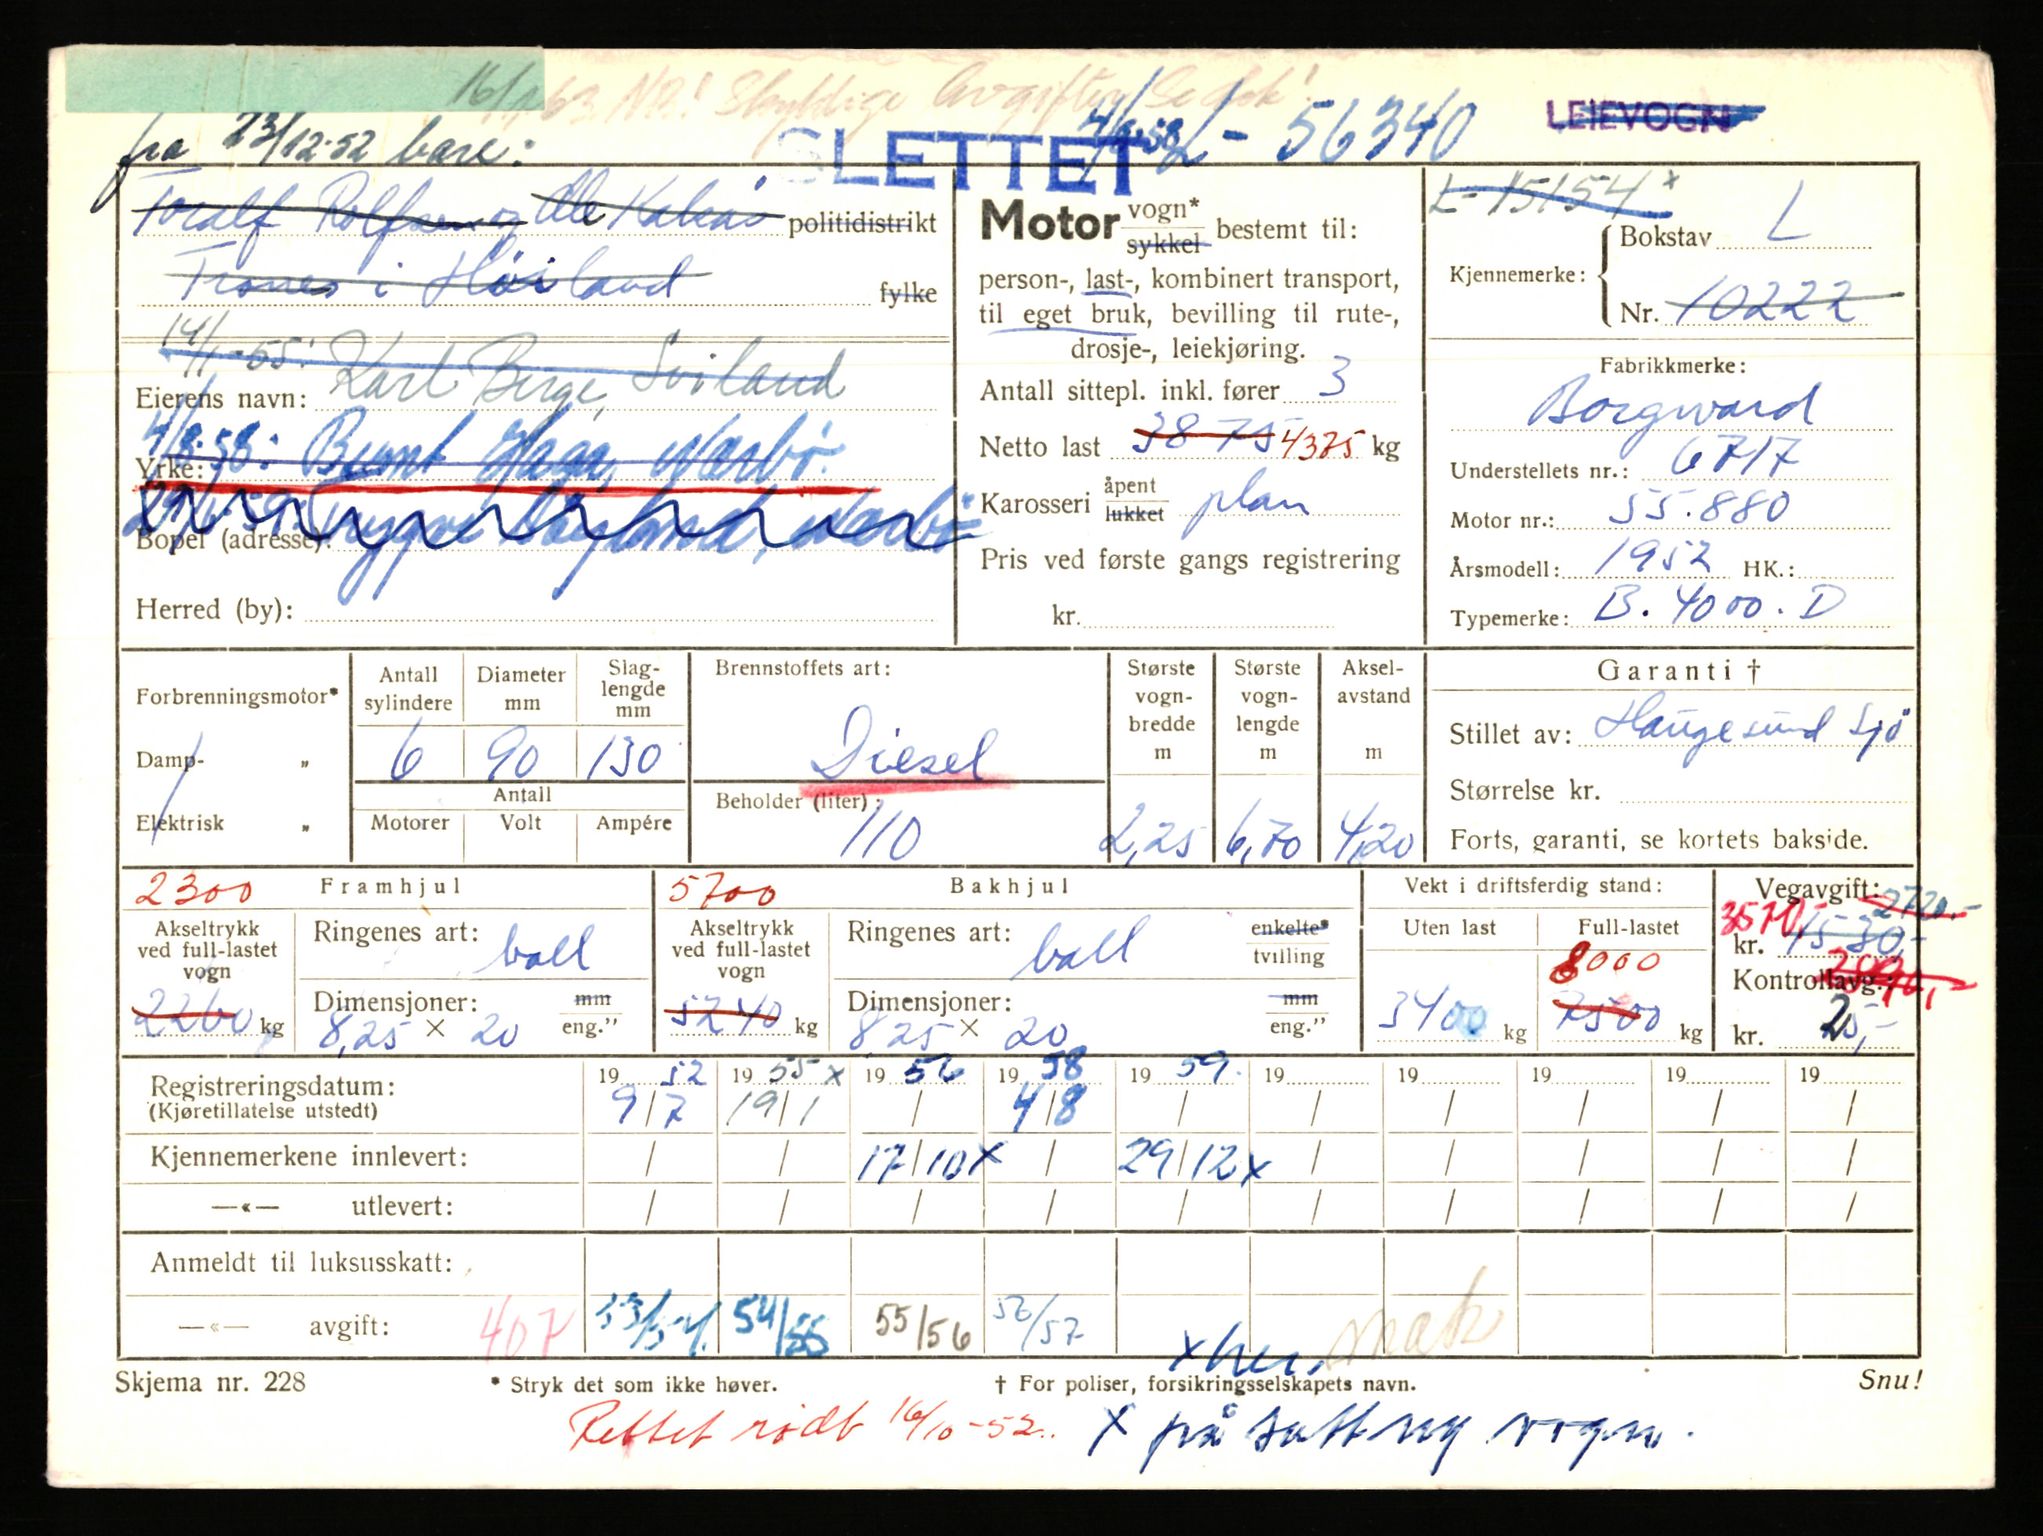 16/1 63 NB! Skyldige Avgifter
fra 23/12-52 bare:
SLETTET
4/8-58 L- 56340
LEIEVOGN
Toralf Rolfsen og Ole politidistrikt
Trones i Høiland fylke
14/1-55: Karl Berge, Sviland
Eierens navn:
4/8-58: Bernt Haga, Nærbø.
Yrke:
Nærbø
Bopel (adresse):
Herred (by):
Motor vogn* sykkel bestemt til:
person-, last-, kombinert transport,
til eget bruk, bevilling til rute-,
drosje-, leiekjøring.
Antall sittepl. inkl. fører 3
Netto last 3875 4375 kg
Karosseri åpent lukket plan
Pris ved første gangs registrering
kr.
L-15154 x
Kjennemerke: Bokstav L
Nr. 10222
Fabrikkmerke:
Borgward
Understellets nr.: 6717
Motor nr.: 55.880
Årsmodell: 1952 HK.:
Typemerke: B. 4000. D
Forbrenningsmotor*
Damp- „
Elektrisk „
Antall sylindere 6
Diameter mm 90
Slaglengde mm 130
Antall
Motorer Volt Ampére
Brennstoffets art:
Diesel
Beholder (liter):
110
Største vognbredde m 2,25
Største vognlengde m 6,70
Akselavstand m 4,20
Garanti †
Stillet av: Haugesund Sjø
Størrelse kr.
Forts, garanti, se kortets bakside.
2300 Framhjul
Akseltrykk ved full-lastet vogn
2260 kg
Ringenes art: ball
Dimensjoner: mm eng."
8,25 × 20
5700 Bakhjul
Akseltrykk ved full-lastet vogn
5240 kg
Ringenes art: ball enkelte* tvilling
Dimensjoner: mm eng."
8,25 × 20
Vekt i driftsferdig stand:
Uten last Full-lastet
8000
3400 kg 7500 kg
Vegavgift: 2720.-
3570,-
kr. 1530,-
Kontrollavg.:
kr. 20,-
Registreringsdatum: 19 52 19 55 x 19 56 19 58 19 59. 19 19 19 19 19
(Kjøretillatelse utstedt) 9/7 19/1 / 4/8 / / / / / /
Kjennemerkene innlevert: / / 17/10 x / 29/12 x / / / / /
—«— utlevert: / / / / / / / / / /
Anmeldt til luksusskatt:
—«— avgift: 407 53/54. 54/55 55/56 56/57
x her.
Skjema nr. 228 * Stryk det som ikke høver. † For poliser, forsikringsselskapets navn. Snu!
Rettet rødt 16/10-52. X på satt ny vogn.